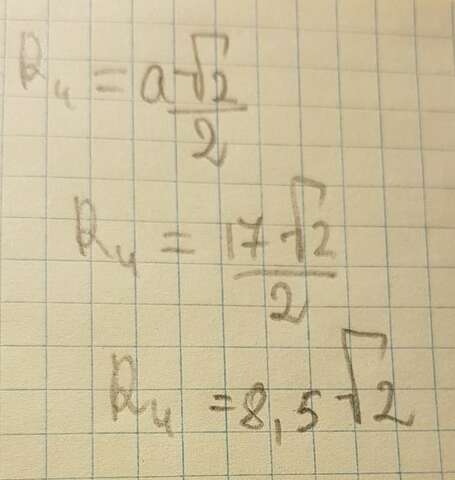 R₄ = a√2/2
R₄ = 17√2/2
R₄ = 8,5√2